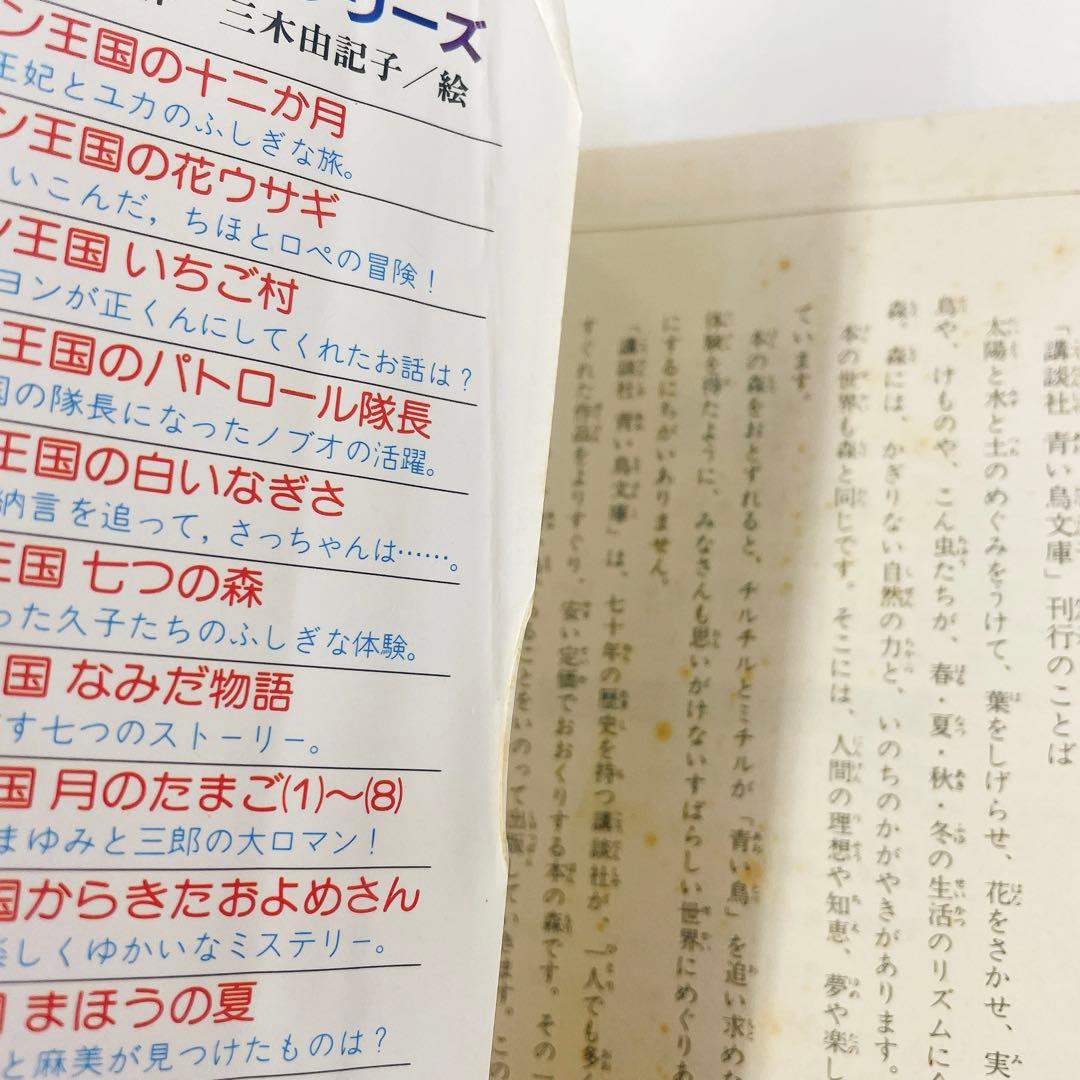 リーズ
三木由記子／絵
ン王国の十二か月
王妃とユカのふしぎな旅。
ン王国の花ウサギ
いこんだ，ちほとロペの冒険！
ン王国 いちご村
ヨンが正くんにしてくれたお話は？
王国のパトロール隊長
国の隊長になったノブオの活躍。
王国の白いなぎさ
納言を追って，さっちゃんは……。
王国 七つの森
った久子たちのふしぎな体験。
国 なみだ物語
す七つのストーリー。
国 月のたまご⑴〜⑻
まゆみと三郎の大ロマン！
国からきたおよめさん
楽しくゆかいなミステリー。
まほうの夏
と麻美が見つけたものは？
「講談社 青い鳥文庫」刊行のことば
太陽と水と土のめぐみをうけて、葉をしげらせ、花をさかせ、実
鳥や、けものや、こん虫たちが、春・夏・秋・冬の生活のリズムに
森。森には、かぎりない自然の力と、いのちのかがやきがあります。
本の世界も森と同じです。そこには、人間の理想や知恵、夢や楽し
ています。
本の森をおとずれると、チルチルとミチルが「青い鳥」を追い求め
体験を得たように、みなさんも思いがけないすばらしい世界にめぐりあ
にするにちがいありません。
「講談社 青い鳥文庫」は、七十年の歴史を持つ講談社が、一人でも多く
すぐれた作品をよりすぐり、安い定価でおおくりする本の森です。その一
ることをいのって出版していきます。この